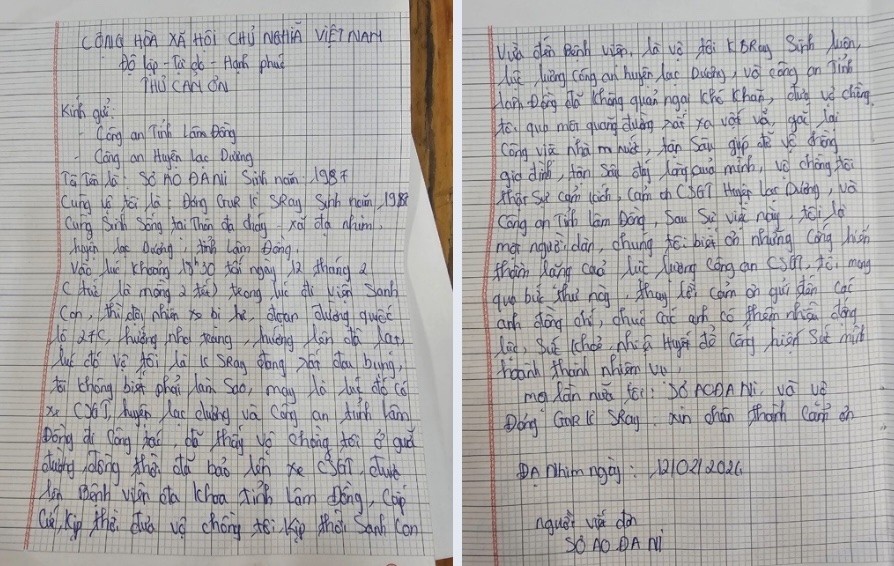 CỘNG HÒA XÃ HỘI CHỦ NGHĨA VIỆT NAM
Độ lập - Tự do - Hạnh phúc
THƯ CẢM ƠN
Kính gửi:
- Công an Tỉnh Lâm Đồng
- Công an Huyện Lạc Dương
Tôi Tên là: SƠ AO ĐA NI Sinh năm: 1987
Cùng vợ tôi là: Đơng GuR K' SRay Sinh năm, 1988
Cùng Sinh Sống tại Thôn đạ cháy - xã đạ nhim,
huyện lạc Dương, tỉnh Lâm Đồng.
Vào lúc khoảng 19h30 tối ngày 12 tháng 2
(tức là mồng 2 tết) trong lúc đi viện Sanh
Con, thì đột nhiên xe bị hư, đoạn đường quốc
lộ 27C, hướng nha trang, hướng lên đà lạt
lúc đó vợ tôi là K SRay đang rất đau bụng,
tôi không biết phải làm sao, may là lúc đó có
xe CSGT, huyện lạc dương và công an tỉnh lâm
Đồng đi công tác, đã thấy vợ chồng tôi ở giữa
đường, đồng thời đã bảo lên xe CSGT, đưa
lên Bệnh viện đa khoa tỉnh Lâm Đồng, Cấp
Cứu, kịp thời đưa vợ chồng tôi kịp thời Sanh Con
Vừa đến Bệnh viện, là vợ tôi K SRay Sinh luôn,
lực lượng Công an huyện lạc Dương, và công an Tỉnh
lâm Đồng đã không quản ngại khó khăn, đưa vợ chồng
tôi qua một quãng đường rất xa vất vả, gác lại
Công việc nhà nước, tận Sau giúp đỡ vợ chồng
gia đình, tận Sâu đáy lòng của mình, vợ chồng tôi
thật Sự cảm kích, Cảm ơn CSGT Huyện Lạc Dương, và
Công an Tỉnh Lâm Đồng, Sau Sự việc này, tôi là
một người dân, chúng tôi biết ơn những Công hiến
thầm lặng của lực lượng Công an CSGT, tôi mong
qua bức thư này, thay lời cảm ơn gửi đến các
anh đồng chí, chúc các anh có thêm nhiều động
lực, Sức khoẻ, nhiệt Huyết để Cống hiến Sức mình
hoành thành nhiệm vụ.
một lần nữa tôi: SƠ AO ĐA Ni, và vợ
Đơng GuR K' SRay. xin chân thành cảm ơn
ĐẠ Nhim ngày: 12/02/2024
người viết đơn
SƠ AO ĐA Ni